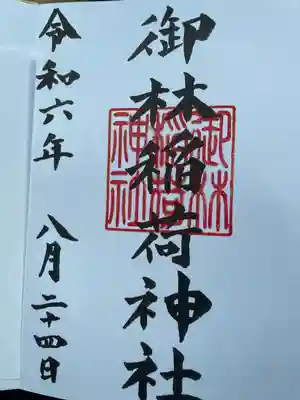 御林稲荷神社
御林稲荷神社
令和六年 八月二十四日